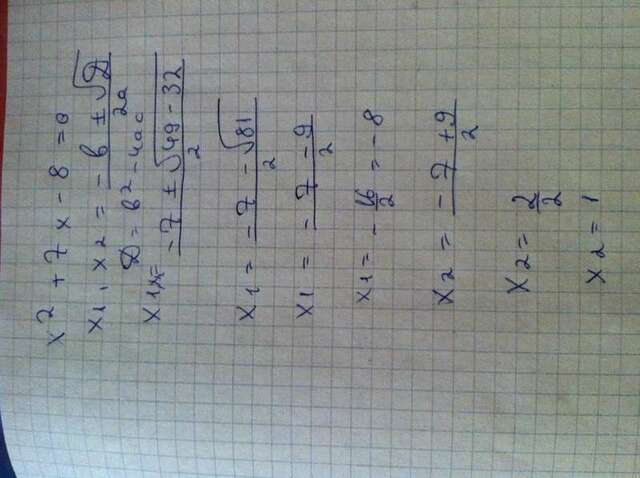 x² + 7x - 8 = 0
x1, x2 = (-в ± √D)/2a
D = в² - 4ac
x1,2 = (-7 ± √49 - 32)/2
x1 = (-7 - √81)/2
x1 = (-7 - 9)/2
x1 = -16/2 = -8
x2 = (-7 + 9)/2
x2 = 2/2
x2 = 1